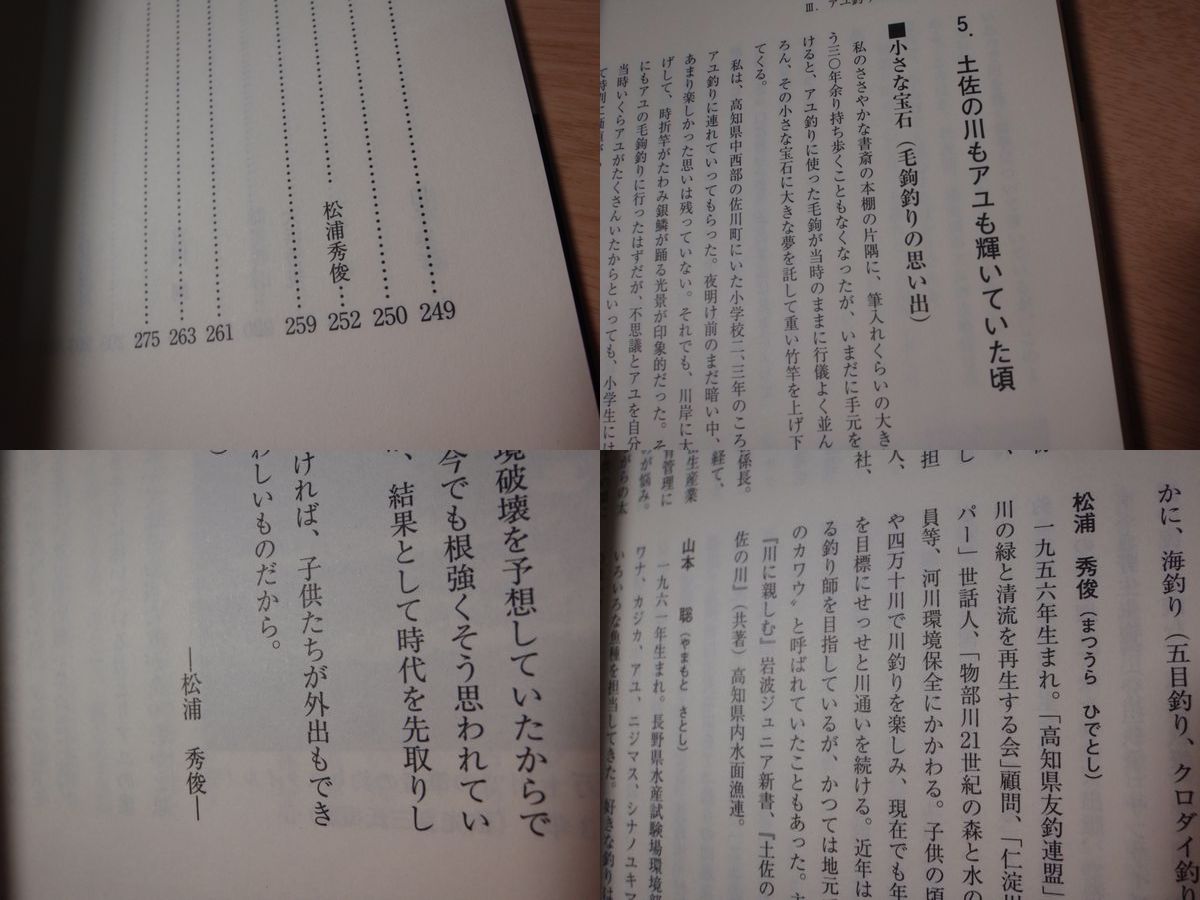 松浦秀俊
249
250
252
259
261
263
275
Ⅲ. アユ釣り
5. 土佐の川もアユも輝いていた頃
■小さな宝石(毛鉤釣りの思い出)
私のささやかな書斎の本棚の片隅に、筆入れくらいの大き
う三〇年余り持ち歩くこともなくなったが、いまだに手元を
けると、アユ釣りに使った毛鉤が当時のままに行儀よく並ん
ろん、その小さな宝石に大きな夢を託して重い竹竿を上げ下
てくる。
私は、高知県中西部の佐川町にいた小学校二、三年のころ
アユ釣りに連れていってもらった。夜明け前のまだ暗い中、
あまり楽しかった思いは残っていない。それでも、川岸に大
げして、時折竿がたわみ銀鱗が踊る光景が印象的だった。そ
にもアユの毛鉤釣りに行ったはずだが、不思議とアユを自分
当時いくらアユがたくさんいたからといっても、小学生には
境破壊を予想していたからで
今でも根強くそう思われてい
、結果として時代を先取りし
ければ、子供たちが外出もでき
わしいものだから。
―松浦 秀俊―
かに、海釣り(五目釣り、クロダイ釣り
松浦 秀俊(まつうら ひでとし)
一九五六年生まれ。「高知県友釣連盟」
川の緑と清流を再生する会」顧問、「仁淀川
パー」世話人、「物部川21世紀の森と水の
員等、河川環境保全にかかわる。子供の頃
や四万十川で川釣りを楽しみ、現在でも年
を目標にせっせと川通いを続ける。近年は
る釣り師を目指しているが、かつては地元で
のカワウ〟と呼ばれていたこともあった。主
『川に親しむ』岩波ジュニア新書、『土佐の
佐の川』(共著)高知県内水面漁連。
山本 聡(やまもと さとし)
一九六一年生まれ。長野県水産試験場環境部
ワナ、カジカ、アユ、ニジマス、シナノユキマ
いろいろな魚種を担当してきた。好きな釣りは
係長。
経て、
生産業
管理に
が悩み。